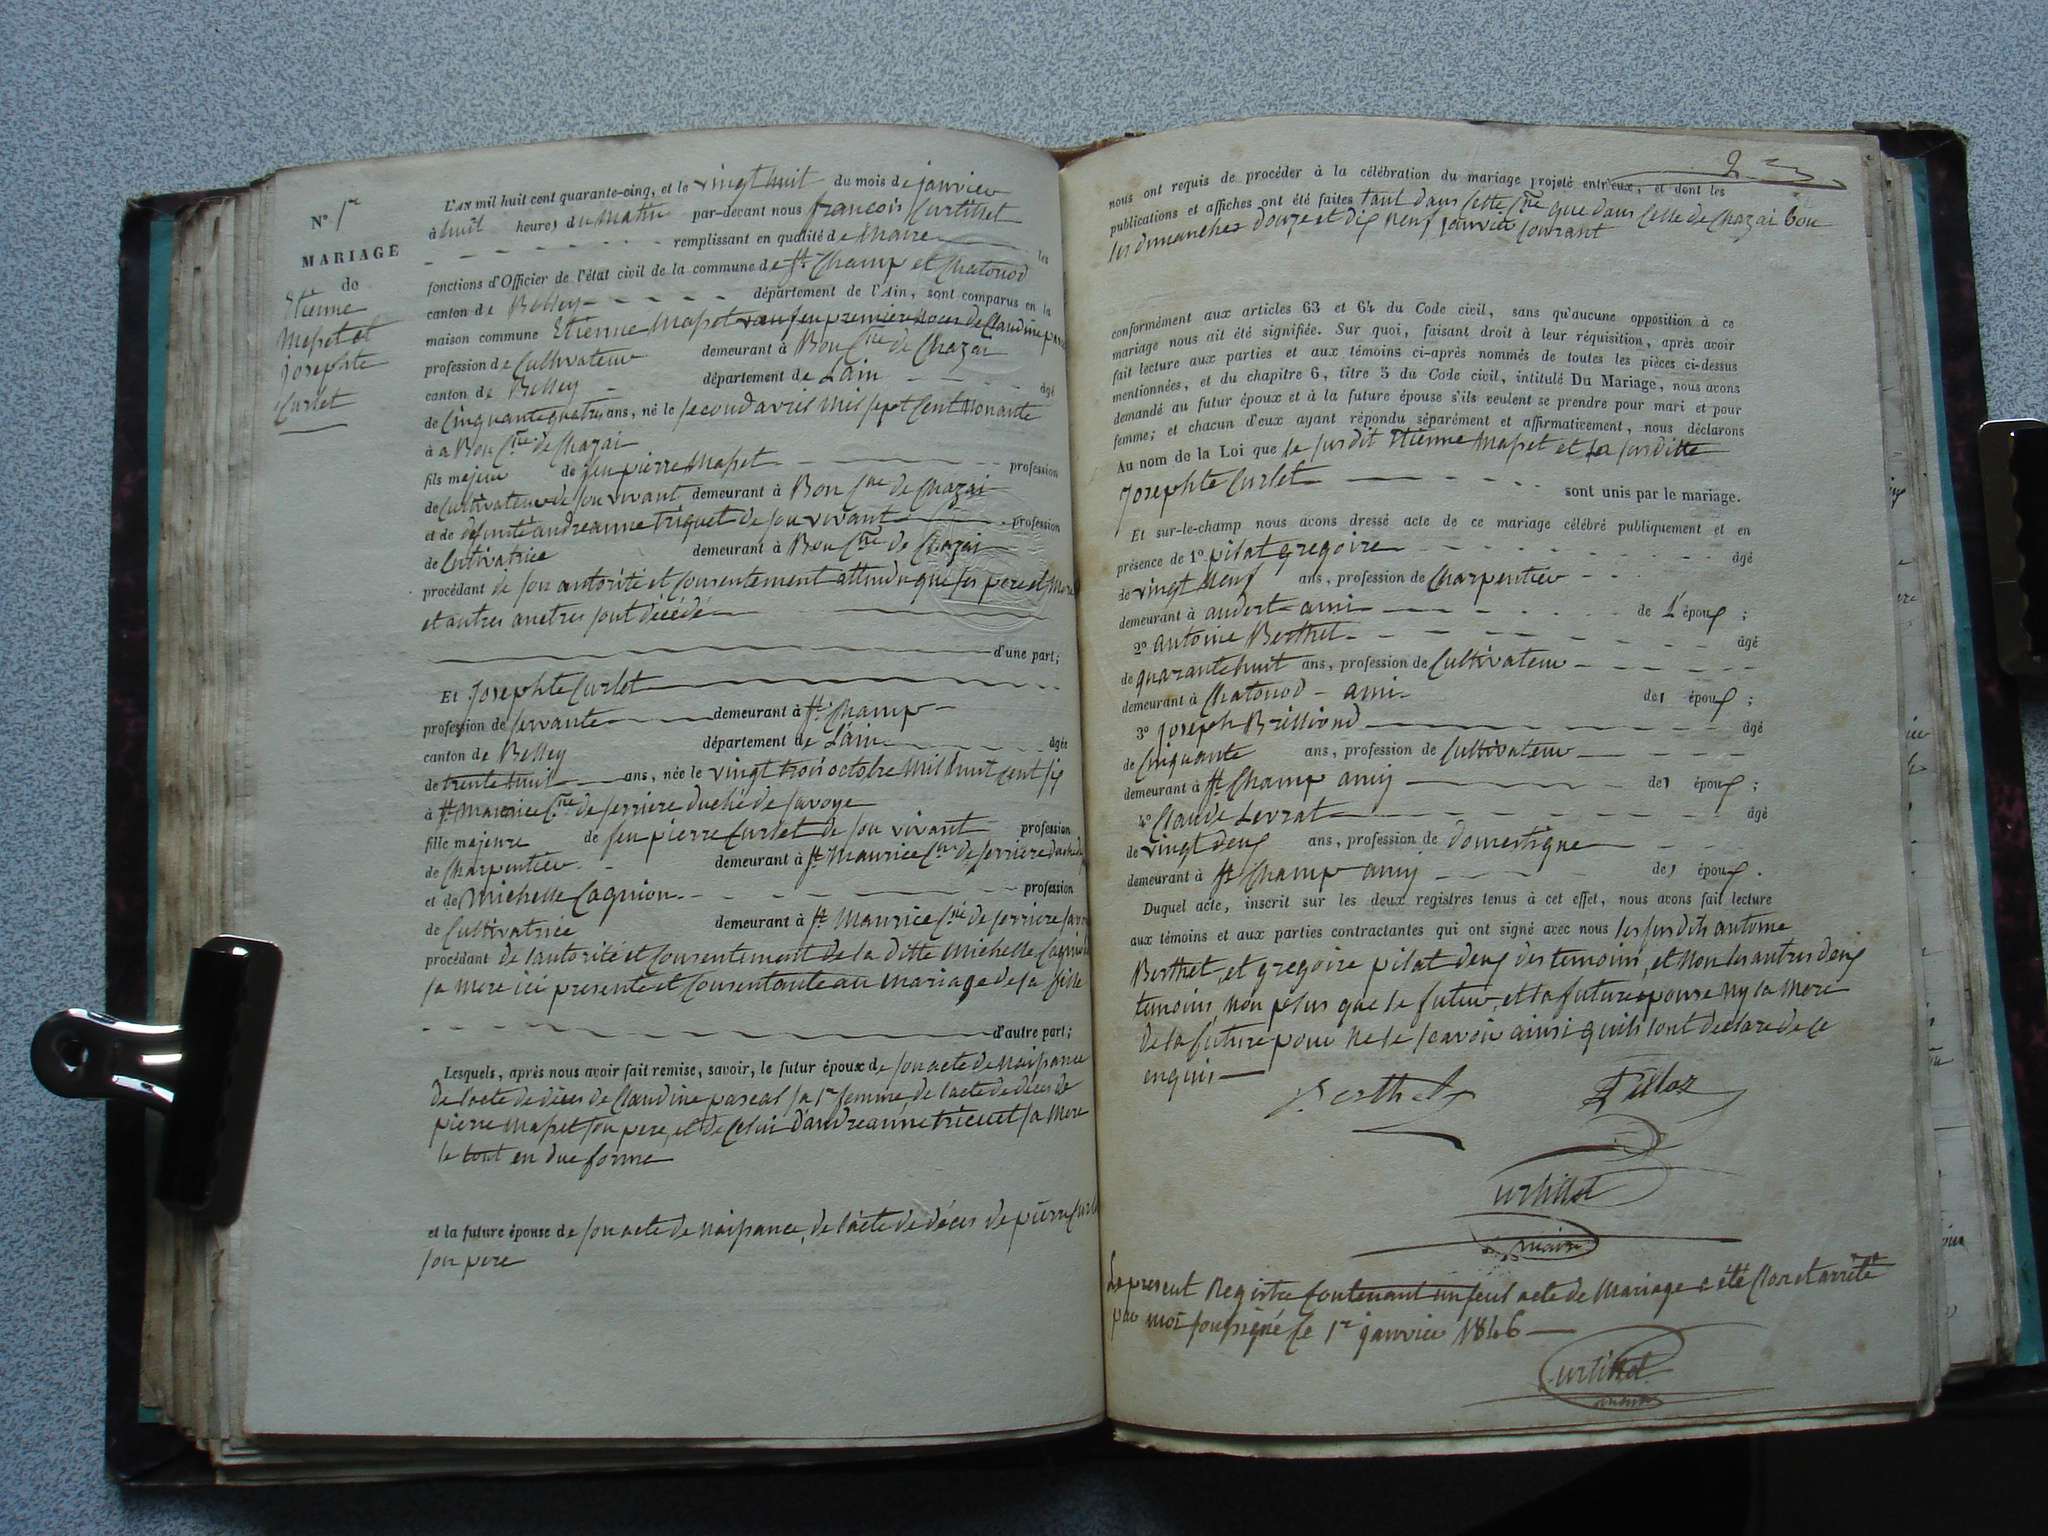 N° 1er
MARIAGE
de
Etienne
Masset et
Josephte
Curlet
L'AN mil huit cent quarante-cinq, et le vingt huit du mois de janvier
à huit heures du matin par-devant nous françois Curtillet
remplissant en qualité de Maire les
fonctions d'Officier de l'état civil de la commune de St Champ et Chatonod
canton de Belley département de l'Ain, sont comparus en la
maison commune Etienne Masset veuf en premiere noces de Claudine
profession de Cultivateur demeurant à Bon Cne de Chazai
canton de Belley département de Lain âgé
de Cinquante quatre ans, né le second avril mil sept cent Nonante
à a Bon Cne de Chazai
fils majeur de feu pierre Masset profession
de Cultivateur de son vivant demeurant à Bon Cne de Chazai
et de defunte andreanne triquet de son vivant profession
de Cultivatrice demeurant à Bon Cne de Chazai
procédant de son autorité et consentement attendu que ses pere et Mere
et autres ancetres sont décédé
d'une part;
Et Josephte Curlet
profession de servante demeurant à St Champ
canton de Belley département de Lain âgée
de trente huit ans, née le vingt trois octobre mil huit cent six
à St Maurice Cne de serriere duché de savoye
fille majeure de feu pierre Curlet de son vivant profession
de Charpentier demeurant à St Maurice Cne de serriere
et de Michelle Cagnion profession
de Cultivatrice demeurant à St Maurice Cne de serriere
procédant de lautorité et consentement de la ditte Michelle
sa Mere ici presente et Consentante au mariage de sa fille
d'autre part;
Lesquels, après nous avoir fait remise, savoir, le futur époux de son acte de Naissance
de lacte de déces de Claudine pascal sa 1re femme, de lacte de déces de
pierre Masset son pere, et de Celui d'andreanne tricuet sa Mere
le tout en due forme
et la future épouse de son acte de Naissance, de lacte de déces de pierre
son pere
2
nous ont requis de procéder à la célébration du mariage projeté entr'eux, et dont les
publications et affiches ont été faites tant dans Cette Cne que dans Celle de Chazai bon
les dimanches douze et dix neuf janvier courant
conformément aux articles 63 et 64 du Code civil, sans qu'aucune opposition à ce
mariage nous ait été signifiée. Sur quoi, faisant droit à leur réquisition, après avoir
fait lecture aux parties et aux témoins ci-après nommés de toutes les pièces ci-dessus
mentionnées, et du chapitre 6, titre 5 du Code civil, intitulé Du Mariage, nous avons
demandé au futur époux et à la future épouse s'ils veulent se prendre pour mari et pour
femme; et chacun d'eux ayant répondu séparément et affirmativement, nous déclarons
Au nom de la Loi que le susdit Etienne Masset et La susditte
Josephte Curlet sont unis par le mariage.
Et sur-le-champ nous avons dressé acte de ce mariage célébré publiquement et en
présence de 1° pilat gregoire âgé
de vingt Neuf ans, profession de Charpentier
demeurant à andert ami de L'époux;
2° antoine Berthet âgé
de quarante huit ans, profession de Cultivateur
demeurant à Chatonod ami de l'époux;
3° Joseph Brilliond âgé
de Cinquante ans, profession de Cultivateur
demeurant à St Champ amis de l'époux;
4° Claude Levrat âgé
de vingt deux ans, profession de domestique
demeurant à St Champ amis de l'époux.
Duquel acte, inscrit sur les deux registres tenus à cet effet, nous avons fait lecture
aux témoins et aux parties contractantes qui ont signé avec nous les susdits antoine
Berthet, et gregoire pilat deux des temoins, et Non les autres deux
temoins, non plus que le futur, et la future epouse Ny la Mere
de la future pour Ne le scavoir ainsi quils sont declaré de ce
enquis
Berthet
Curtillet
maire
Le present Registre Contenant un seul acte de Mariage a été Clos et arrété
par moi soussigné le 1er janvier 1846
Curtillet
maire